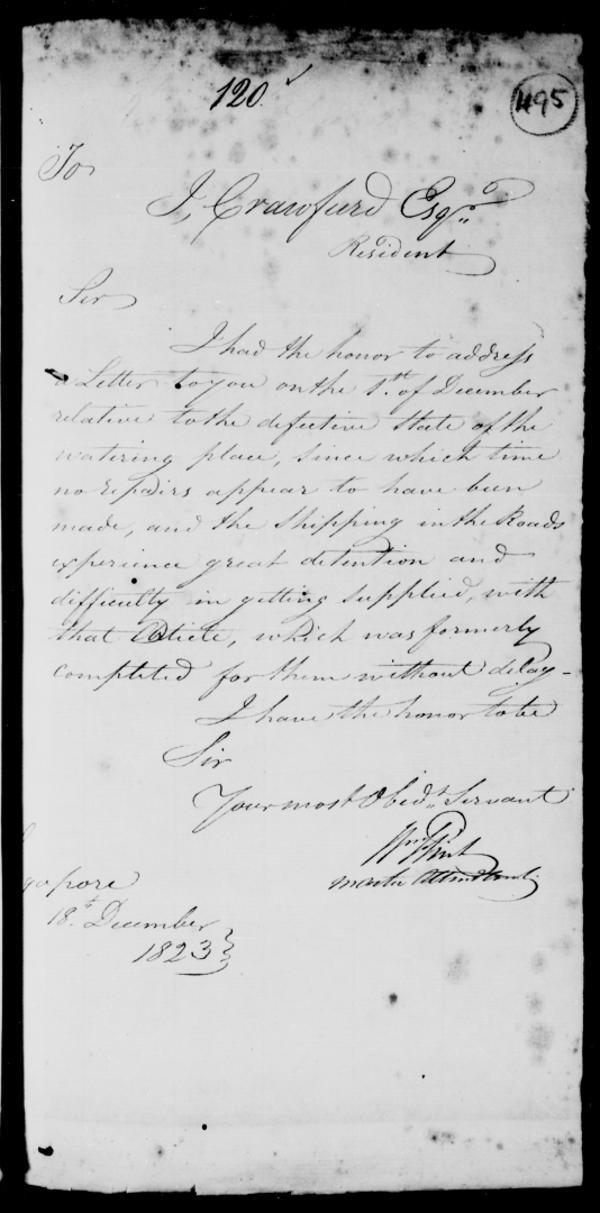 120
495
To
J, Crawfurd Esqr.
Resident
Sir
I had the honor to address
a Letter to you on the 1st. of December
relative to the defective state of the
watering place, since which time
no repairs appear to have been
made, and the Shipping in the Roads
experience great detention and
difficulty in getting supplied, with
that Article, which was formerly
completed for them without delay -
I have the honor to be
Sir
Your most Obedt. Servant
Wm Flint
Master Attendant.
gapore
18th. December
1823